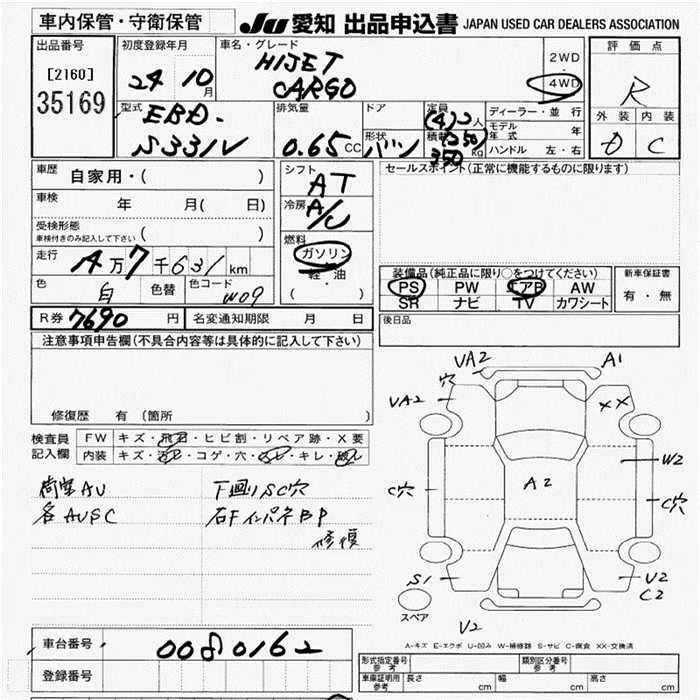 車内保管・守衛保管
JU 愛知 出品申込書 JAPAN USED CAR DEALERS ASSOCIATION
出品番号
[2160]
35169
初度登録年月
24 10月
車名・グレード
HIJET
CARGO
2WD
・
4WD
評価点
R
外装 内装
D C
型式
EBD-
S331V
排気量
0.65 CC
ドア
形状
バン
定員
(4)2人
積載
(250)
350 kg
ディーラー・並行
モデル年式 年
ハンドル 左・右
車歴
自家用・( )
車検
年 月( 日)
受検形態
車検付きのみ記入して下さい ( )
走行
4万7千631km
色
白
色替
色コード
W09
シフト
AT
冷房
A/C
燃料
ガソリン
・
軽油
( )
セールスポイント(正常に機能するものに限ります)
装備品(純正品に限り○をつけてください)
PS PW エアB AW
SR ナビ TV カワシート
新車保証書
有・無
R券 7690 円
名変通知期限 月 日
後日品
注意事項申告欄(不具合内容等は具体的に記入して下さい)
修復歴 有 (箇所
検査員
記入欄
FW キズ・飛石・ヒビ割・リペア跡・X要
内装 キズ・汚レ・コゲ・穴・・キレ・破レ
荷室AU
各AUSC
下回りSC穴
右FインパネBP
修復
VA2
A1
穴
VA2
XX
W2
A2
C穴
C穴
S1
U2
C2
スペア
V2
A-キズ E-エクボ U-凹み W-補修跡 S-サビ C-腐食 XX-交換済
車台番号
0080162
登録番号
形式指定番号
参考
類別区分番号
参考
車庫証明用
参考
長さ cm 幅 cm 高さ cm